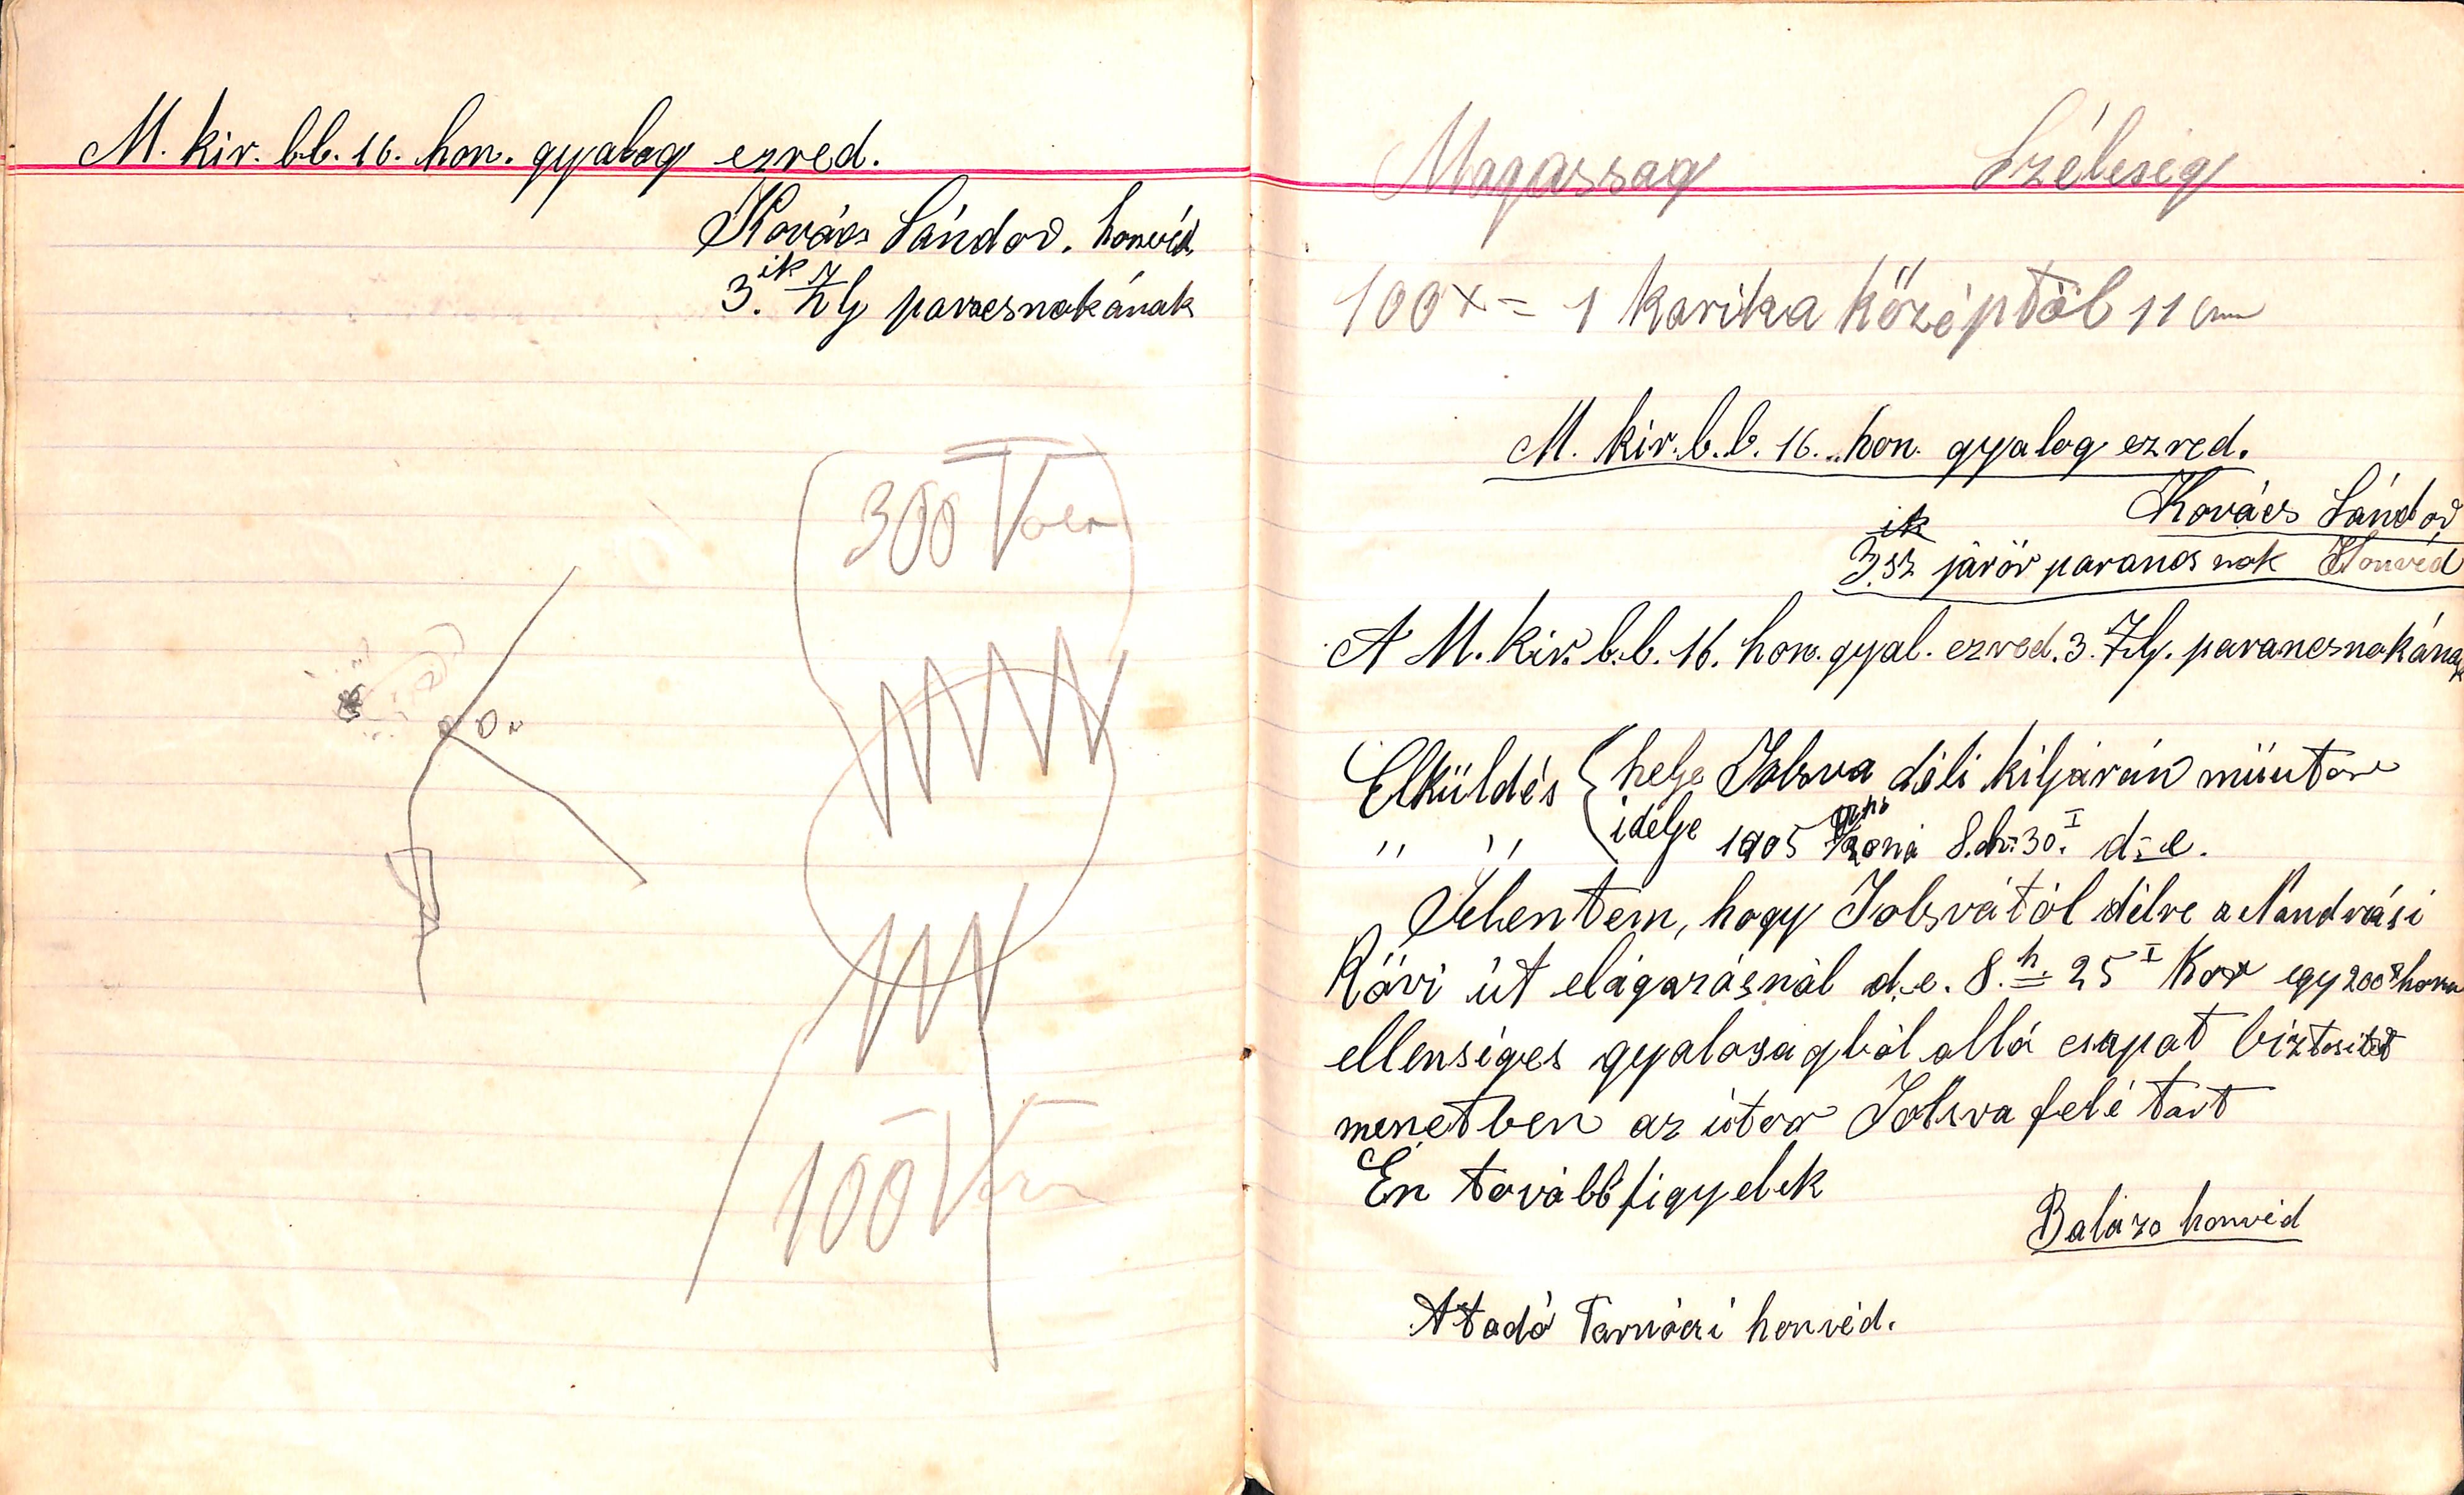 M. kir. bb. 16. hon. gyalog ezred.
Kovács Sándor. honvéd.
3.ik Zlj parancsnokának
300
100
Magassag Szélesig
100x = 1 karika középtöl 11 cm
M. kir. b.b. 16. hon. gyalog ezred.
Kovács Sándor
3.sz járör parancsnok Honvéd
A M. kir. b.b. 16. hon. gyal. ezred. 3. Zlj. parancsnokának
Elküldés { helje Jolsva déli kiljárán müuton
" " idelje 1905 8.h. 30.I d=e.
Jelentem, hogy Jolsvától délre a Nandrási
Kövi út elágazásnál d.e. 8.h. 25I Kor egy 200
ellenséges gyalosagból alló csapat biztositot
menetben az úton Jolsva felé tart
Én továbbfigyelek
Balázs honvéd
Atadó honvéd.